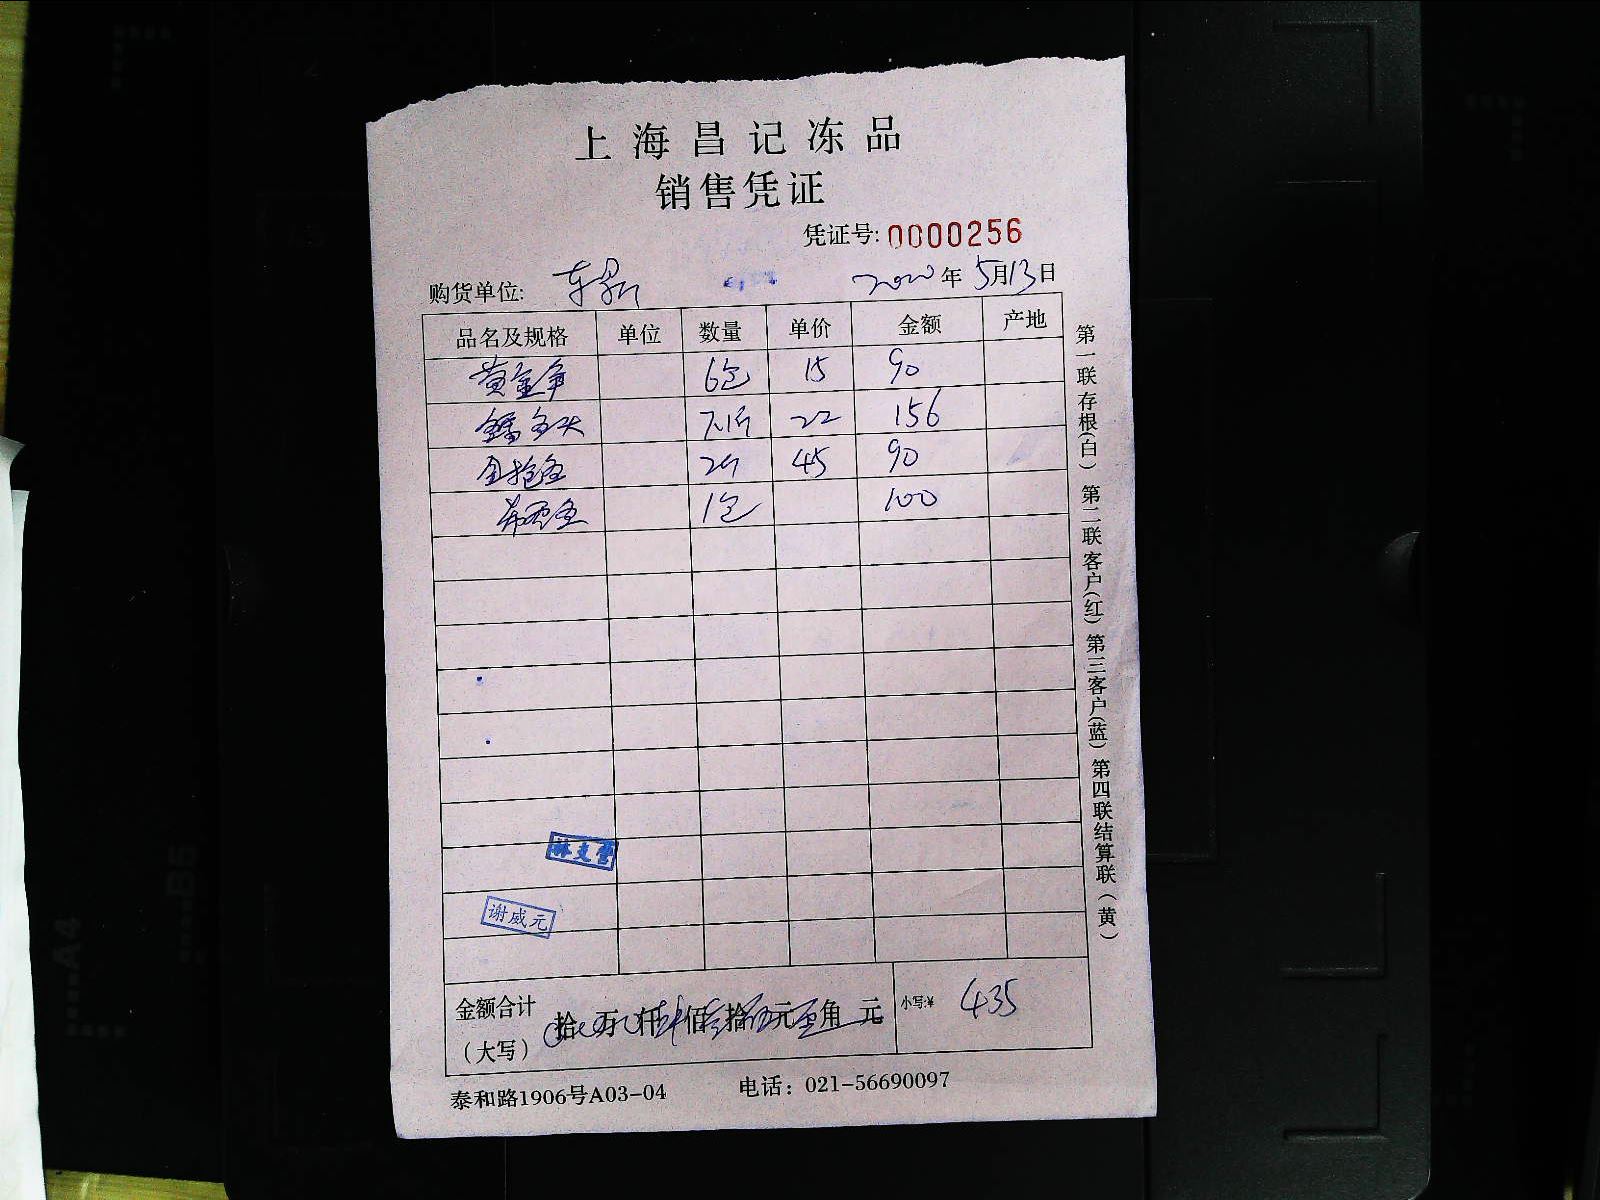 上海昌记冻品
销售凭证
凭证号: 0000256
购货单位: 2020年5月13日
品名及规格 单位 数量 单价 金额 产地
6包 15 90
7.1斤 22 156
2斤 45 90
1包 100
林支营
谢威元
金额合计 拾 万 仟 佰叁拾伍元 角 元 小写:¥ 435
（大写）
泰和路1906号A03-04 电话：021-56690097
第一联存根(白) 第二联客户(红) 第三客户(蓝) 第四联结算联（黄）
A4
B5